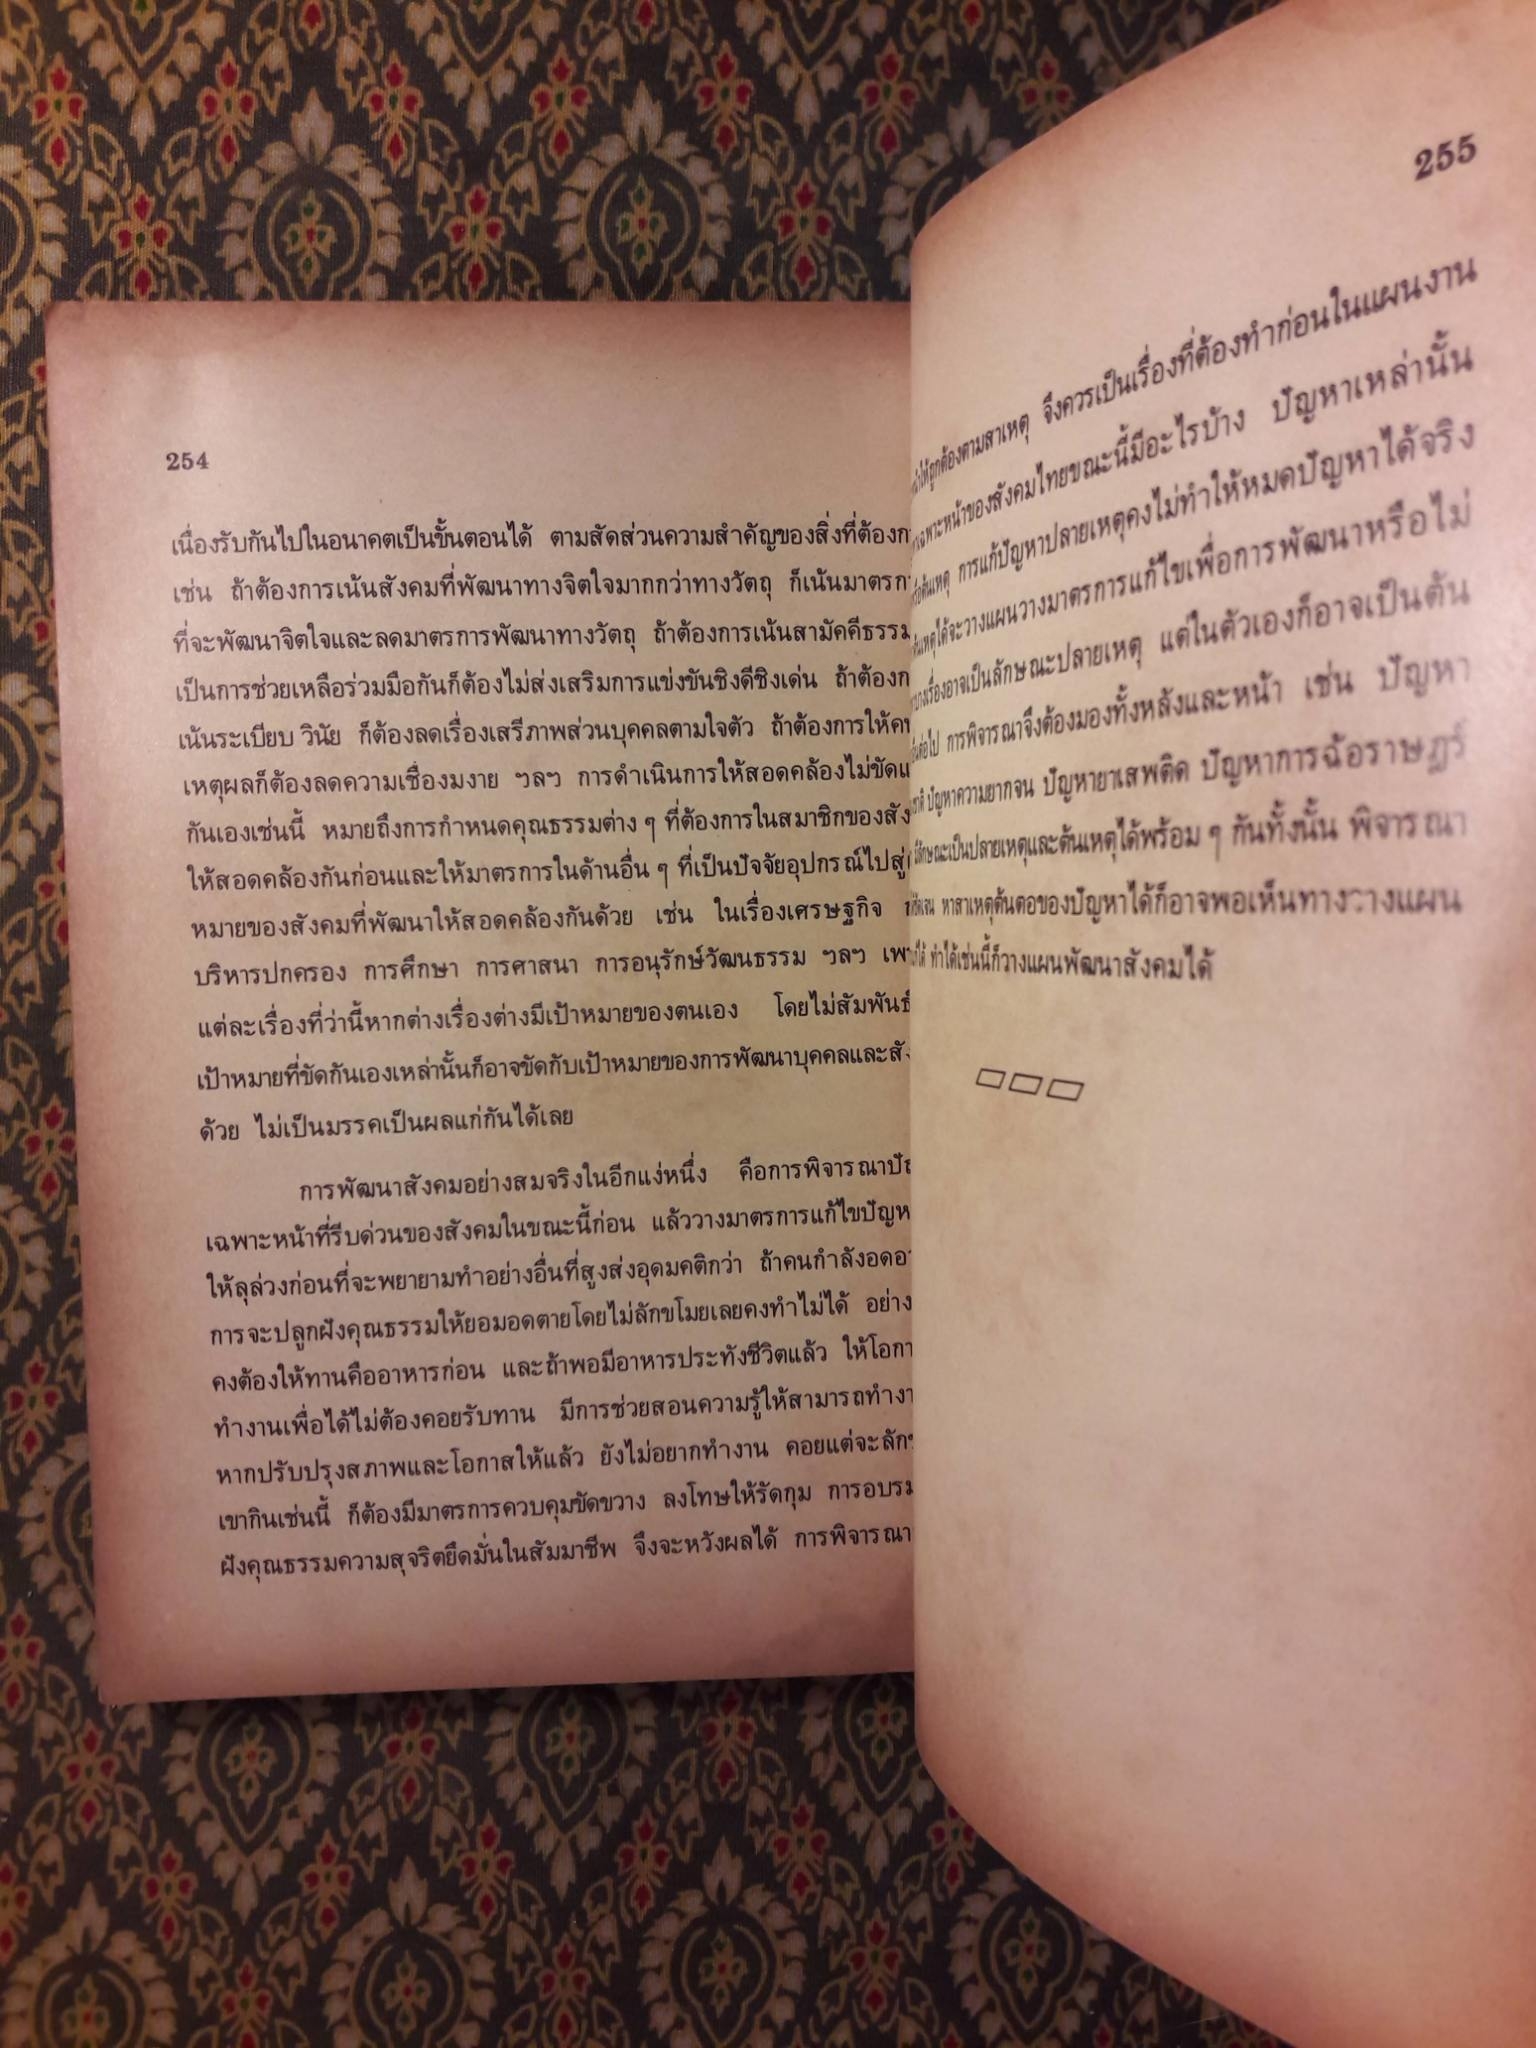 254
เนื่องรับกันไปในอนาคตเป็นขั้นตอนได้ ตามสัดส่วนความสำคัญของสิ่งที่ต้อง
เช่น ถ้าต้องการเน้นสังคมที่พัฒนาทางจิตใจมากกว่าทางวัตถุ ก็เน้นมาตร
ที่จะพัฒนาจิตใจและลดมาตรการพัฒนาทางวัตถุ ถ้าต้องการเน้นสามัคคีธรรม
เป็นการช่วยเหลือร่วมมือกันก็ต้องไม่ส่งเสริมการแข่งขันชิงดีชิงเด่น ถ้าต้อง
เน้นระเบียบ วินัย ก็ต้องลดเรื่องเสรีภาพส่วนบุคคลตามใจตัว ถ้าต้องการให้
เหตุผลก็ต้องลดความเชื่องมงาย ฯลฯ การดำเนินการให้สอดคล้องไม่ขัด
กันเองเช่นนี้ หมายถึงการกำหนดคุณธรรมต่าง ๆ ที่ต้องการในสมาชิกของ
ให้สอดคล้องกันก่อนและให้มาตรการในด้านอื่น ๆ ที่เป็นปัจจัยอุปกรณ์ไปสู่
หมายของสังคมที่พัฒนาให้สอดคล้องกันด้วย เช่น ในเรื่องเศรษฐกิจ
บริหารปกครอง การศึกษา การศาสนา การอนุรักษ์วัฒนธรรม ฯลฯ
แต่ละเรื่องที่ว่านี้หากต่างเรื่องต่างมีเป้าหมายของตนเอง โดยไม่สัมพันธ์
เป้าหมายที่ขัดกันเองเหล่านั้นก็อาจขัดกับเป้าหมายของการพัฒนาบุคคลและ
ด้วย ไม่เป็นมรรคเป็นผลแก่กันได้เลย
การพัฒนาสังคมอย่างสมจริงในอีกแง่หนึ่ง คือการพิจารณา
เฉพาะหน้าที่รีบด่วนของสังคมในขณะนี้ก่อน แล้ววางมาตรการแก้ไข
ให้ลุล่วงก่อนที่จะพยายามทำอย่างอื่นที่สูงส่งอุดมคติกว่า ถ้าคนกำลัง
การจะปลูกฝังคุณธรรมให้ยอมอดตายโดยไม่ลักขโมยเลยคงทำไม่ได้ อย่าง
คงต้องให้ทานคืออาหารก่อน และถ้าพอมีอาหารประทังชีวิตแล้ว ให้
ทำงานเพื่อได้ไม่ต้องคอยรับทาน มีการช่วยสอนความรู้ให้สามารถ
หากปรับปรุงสภาพและโอกาสให้แล้ว ยังไม่อยากทำงาน คอยแต่จะ
เขากินเช่นนี้ ก็ต้องมีมาตรการควบคุมขัดขวาง ลงโทษให้รัดกุม การอบรม
ฝังคุณธรรมความสุจริตยึดมั่นในสัมมาชีพ จึงจะหวังผลได้ การพิจารณา
255
ให้ถูกต้องตามสาเหตุ จึงควรเป็นเรื่องที่ต้องทำก่อนในแผนงาน
เฉพาะหน้าของสังคมไทยขณะนี้มีอะไรบ้าง ปัญหาเหล่านั้น
ต้นเหตุ การแก้ปัญหาปลายเหตุคงไม่ทำให้หมดปัญหาได้จริง
ได้จะวางแผนวางมาตรการแก้ไขเพื่อการพัฒนาหรือไม่
บางเรื่องอาจเป็นลักษณะปลายเหตุ แต่ในตัวเองก็อาจเป็นต้น
ต่อไป การพิจารณาจึงต้องมองทั้งหลังและหน้า เช่น ปัญหา
ปัญหาความยากจน ปัญหายาเสพติด ปัญหาการฉ้อราษฎร์
ลักษณะเป็นปลายเหตุและต้นเหตุได้พร้อม ๆ กันทั้งนั้น พิจารณา
หาสาเหตุต้นตอของปัญหาได้ก็อาจพอเห็นทางวางแผน
ได้ ทำได้เช่นนี้ก็วางแผนพัฒนาสังคมได้